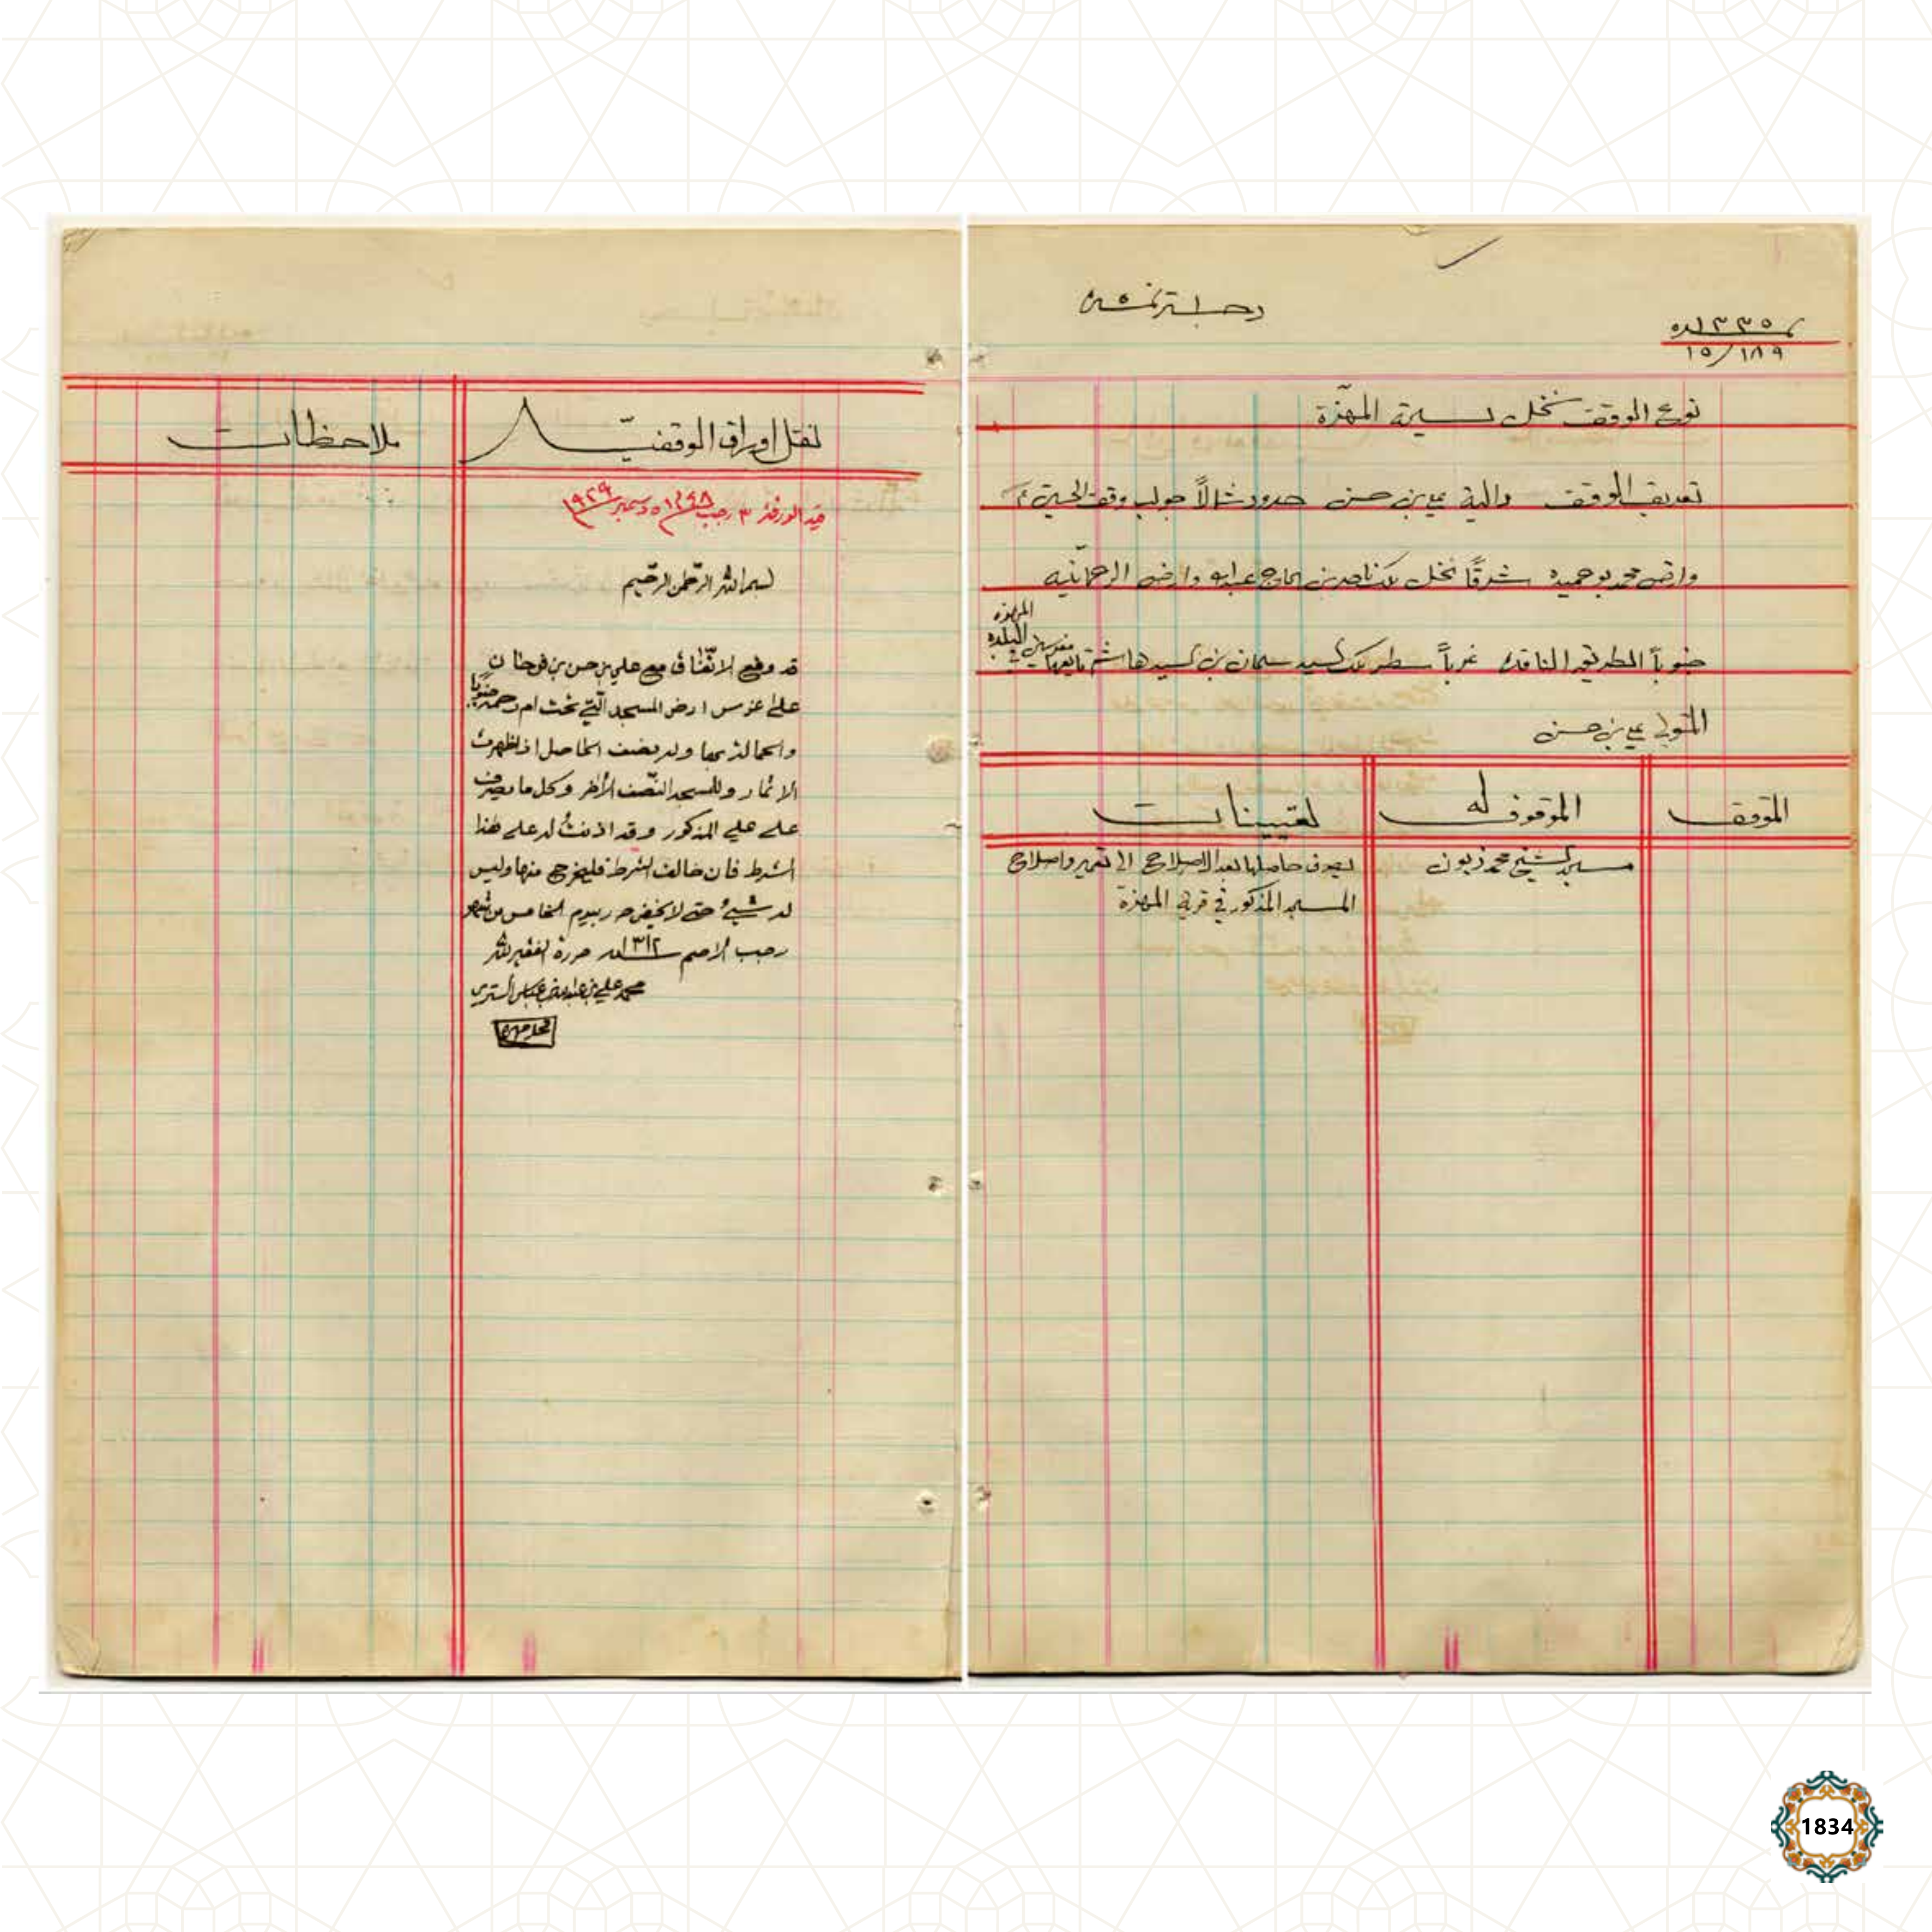 نمرة ١٣٣٥
١٥/١٨٩
نوع الوقف نخل سيحة المهزّة
تعريف الوقف دالية علي بن حسن حدود شمالاً جوليب وقف الحسين ع
وارض محمد بو حميد شرقاً نخل ملك ناصر بن الحاج عبدالله وارض الرحمانية
جنوباً الطريق النافذ غرباً سطر ملك السيد سلمان بن السيد هاشم تابعها
المهزه
البلده
المتولي علي بن حسن
الموقف
الموقوف له
تعيينات
مسجد الشيخ محمد زبون
يصرف حاصلها بعد الاصلاح الى تعمير واصلاح
المسجد المذكور في قرية المهزة
نقل اوراق الوقفيّة
ملاحظات
قيد الورقة ٣ رجب ١٣٤٨ ٥ دسمبر ١٩٢٩
بسم الله الرّحمن الرّحيم
قد وقع الاتّفاق مع علي بن حسن بن فرحان
على غرس ارض المسجد الّتي تحت ام رحمه جنوبا
وله نصف الحاصل اذا ظهرت
الاثمار وللمسجد النّصف الآخر وكل ما يصرف
على علي المذكور وقد اذنتُ له على هذا
الشرط فان خالف الشرط فليخرج منها وليس
له شيءُ حتى لا يخفى حرر بيوم الخامس من شهر
رجب الاصم سنة ١٣١٢ حرره الفقير لله
محمد علي بن عبدالله بن عباس الستري
محل مهره
1834